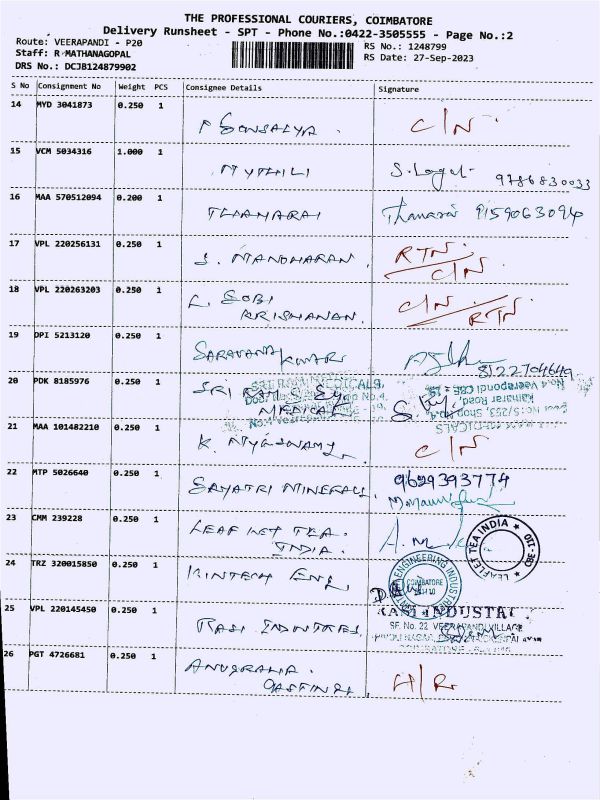 THE PROFESSIONAL COURIERS, COIMBATORE
Delivery Runsheet - SPT - Phone No.:0422-3505555 - Page No.:2
Route: VEERAPANDI - P20
RS No.: 1248799
Staff: R MATHANAGOPAL
RS Date: 27-Sep-2023
DRS No.: DCJB124879902
S No Consignment No Weight PCS Consignee Details Signature
14 MYD 3041873 0.250 1
C/N
15 VCM 5034316 1.000 1
MYTHILI
S. 9786830033
16 MAA 570512094 0.200 1
THAMARAI Thamarai 9159063094
17 VPL 220256131 0.250 1
S. MANOHARAN. RTN
C/N
18 VPL 220263203 0.250 1
L. GOBI C/N
KRISHANAN. RTN
19 DPI 5213120 0.250 1
SARAVANA KUMAR
8122704649
20 PDK 8185976 0.250 1
SRI
MEDICAL
21 MAA 101482210 0.250 1
K. C/N
22 MTP 5026640 0.250 1
9629393774
GAYATRI MINERALS.
23 CMM 239228 0.250 1
LEAF LET TEA. A. M
INDIA.
LEAFLET TEA INDIA
24 TRZ 320015850 0.250 1
KINTECH ENG.
ENGINEERING INDUSTRI
COIMBATORE
25 VPL 220145450 0.250 1
RASI INDUSTRIES.
RASI INDUSTRI
SF. No. 22 VEERAPANDI VILLAGE
26 PGT 4726681 0.250 1
ANUGRAHA.
CASTINGS H/R